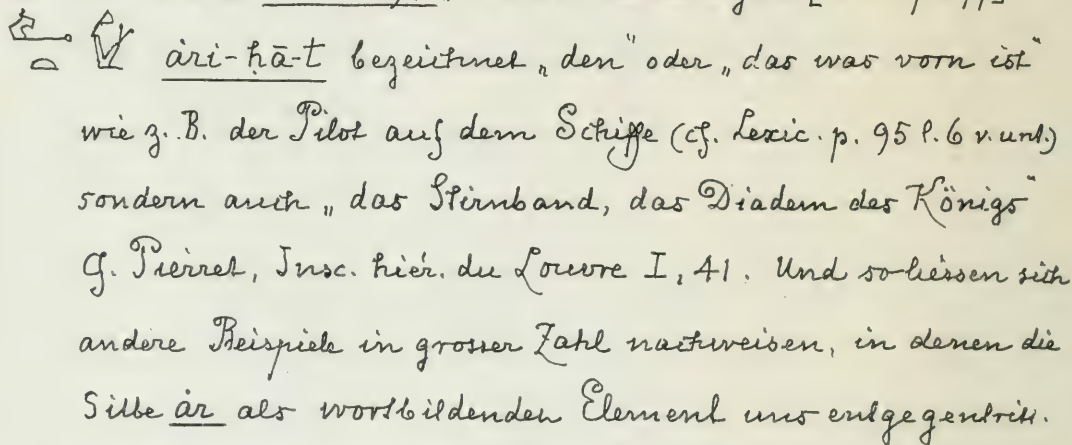 ȧri-ḥā-t bezeichnet „den" oder „das was vorn ist"
wie z. B. der Pilot auf dem Schiffe (cf. Lexic. p. 95 l. 6 v. unt.)
sondern auch „das Stirnband, das Diadem des Königs"
Cf. Pierret, Insc. hiér. du Louvre I, 41. Und so liessen sich
andere Beispiele in grosser Zahl nachweisen, in denen die
Silbe ȧr als wortbildenden Element uns entgegentritt.